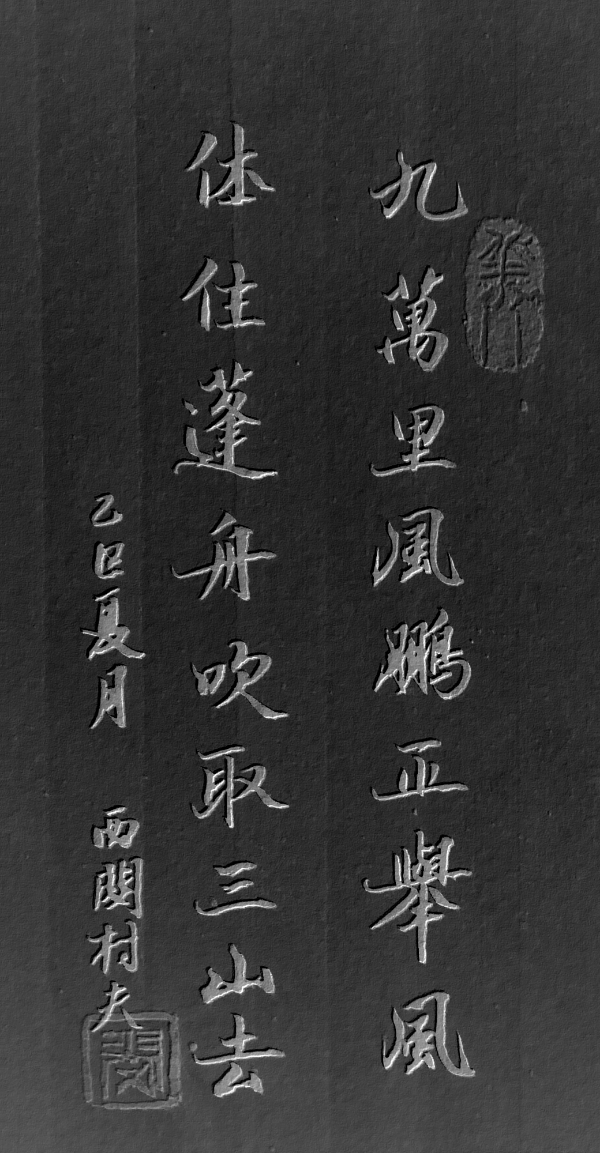 九萬里風鵬正舉風
休住蓬舟吹取三山去
乙巳夏月 西関村夫